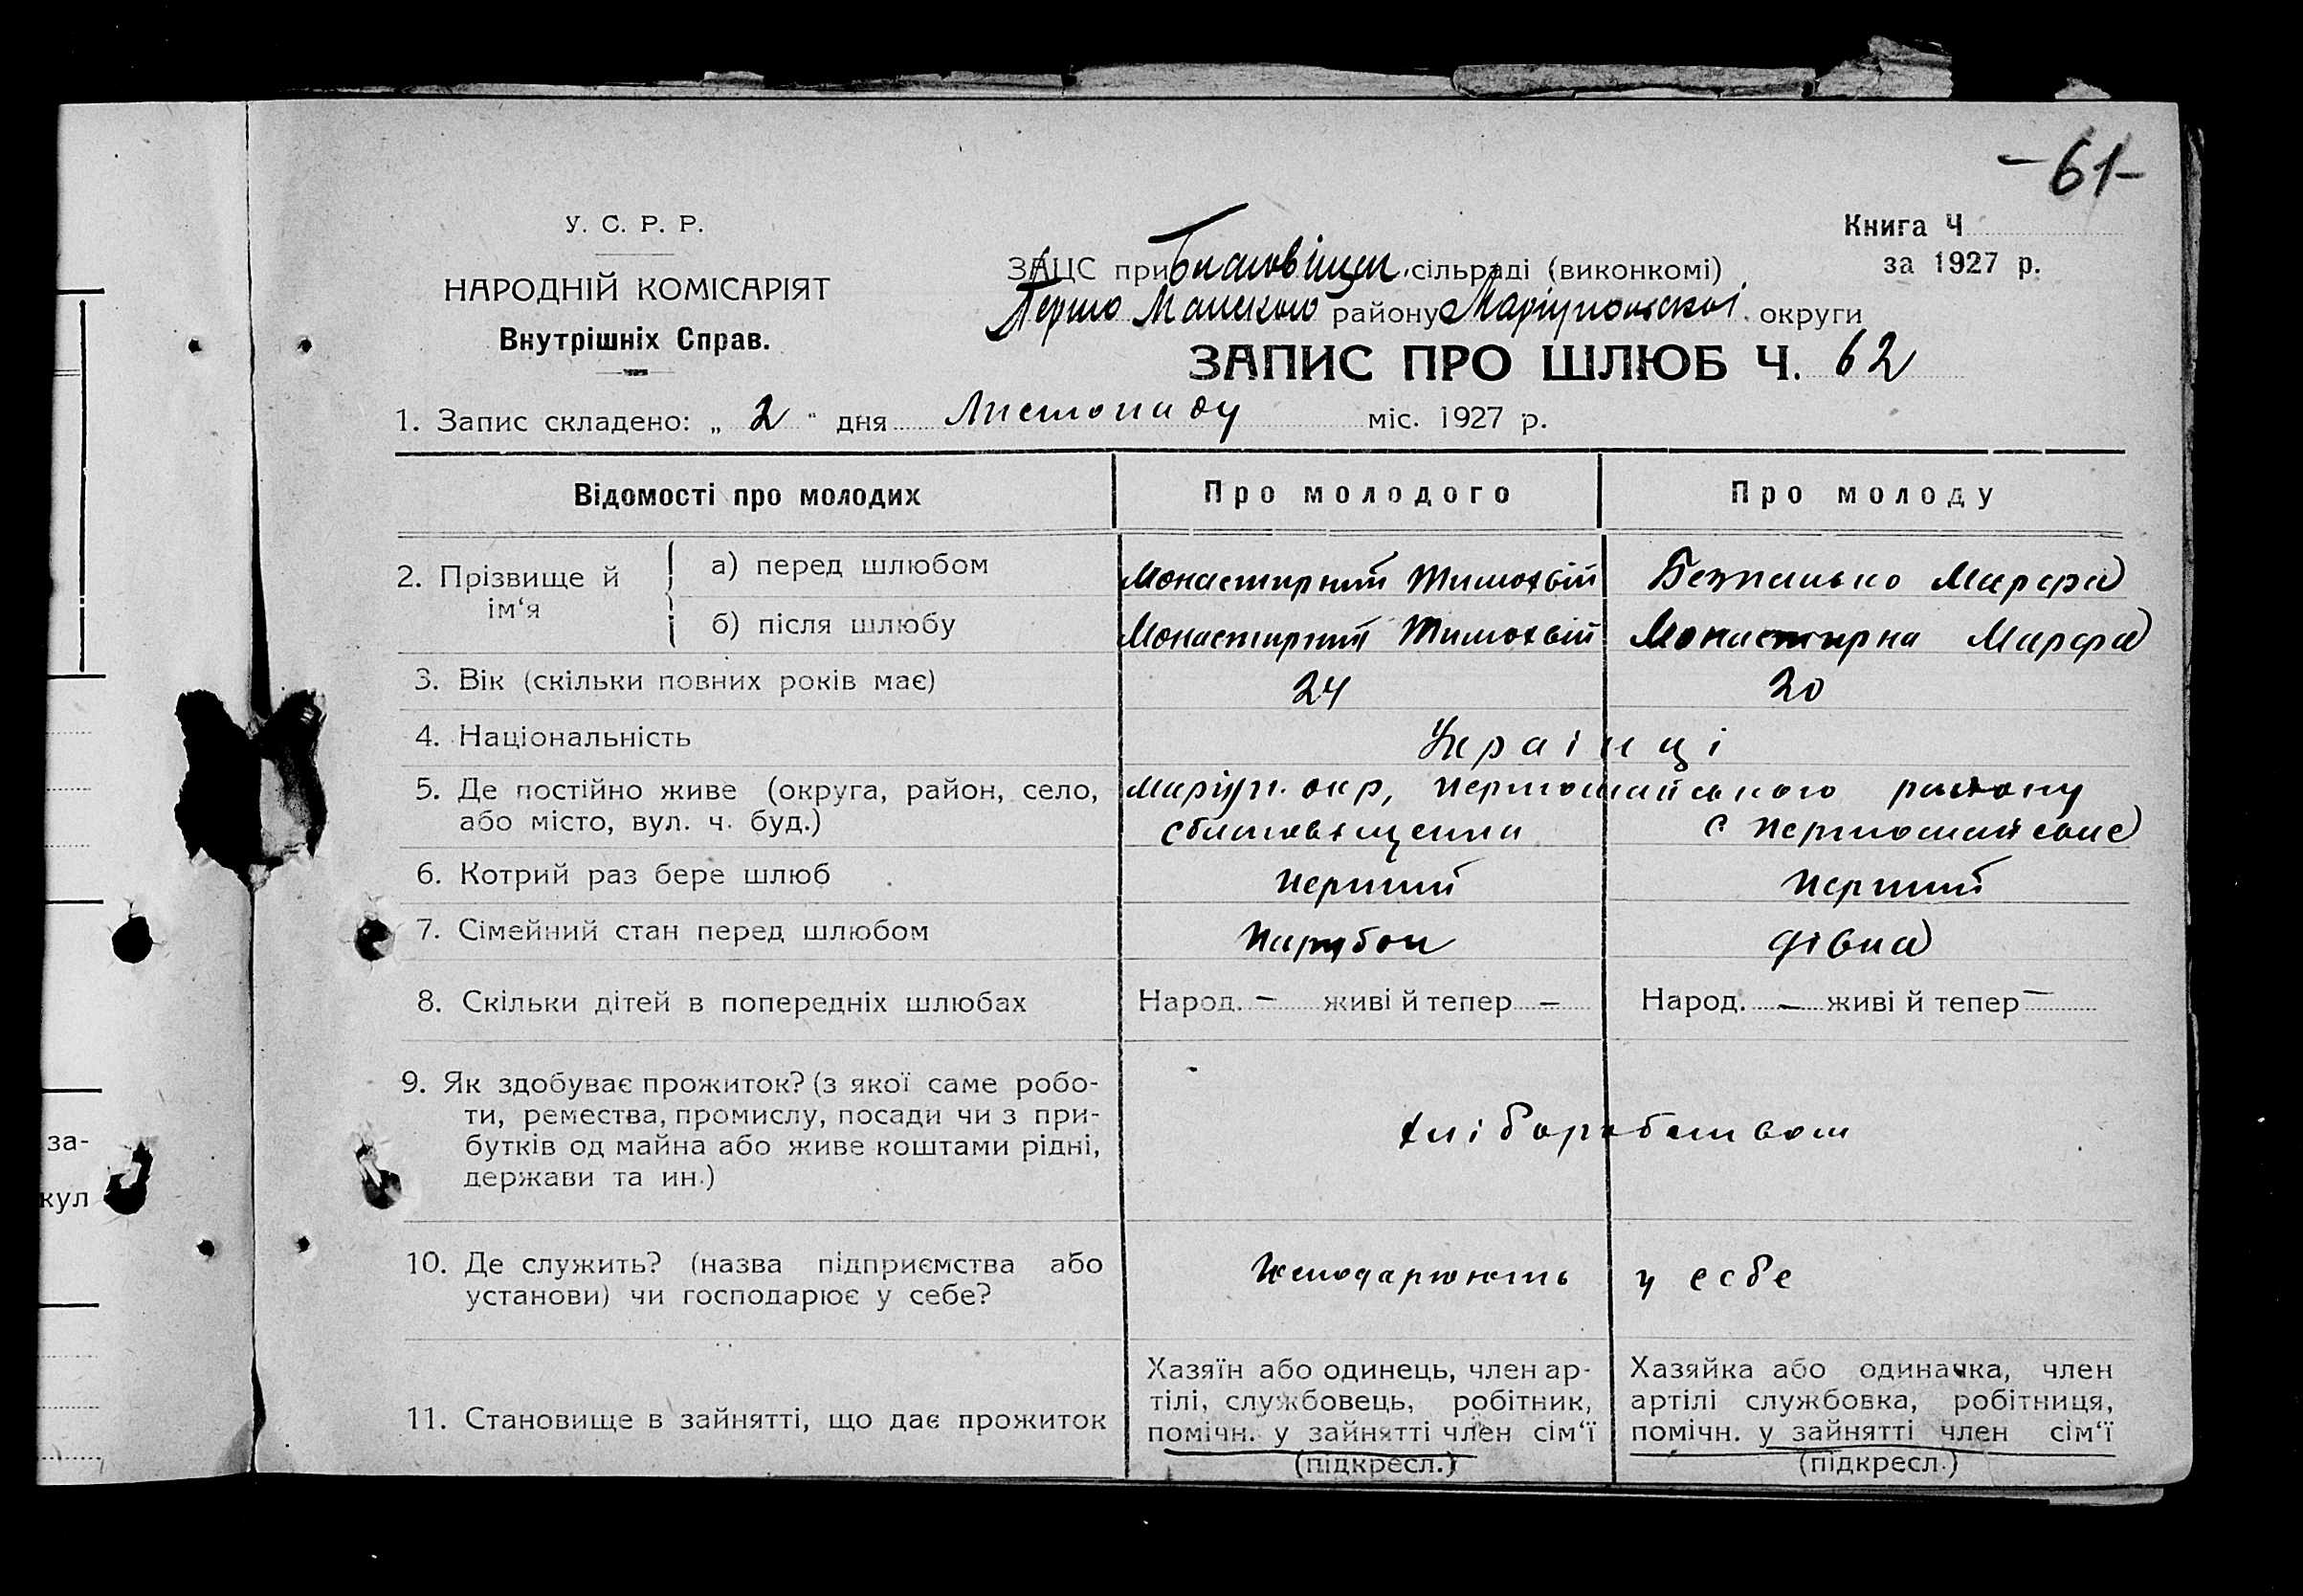 -61-
У. С. Р. Р.
НАРОДНІЙ КОМІСАРІЯТ
Внутрішніх Справ.
Книга Ч
за 1927 р.
ЗАЦС при Благовіщен. сільраді (виконкомі)
Першо Майского району Маріупольскої округи
ЗАПИС ПРО ШЛЮБ Ч. 62
1. Запис складено: „ 2 " дня Листопаду міс. 1927 р.
Відомості про молодих Про молодого Про молоду
2. Прізвище й ім‘я
а) перед шлюбом Монастирний Тимохвій Безпалько Марфа
б) після шлюбу Монастирний Тимохвій Монастирна Марфа
3. Вік (скільки повних років має) 24 20
4. Національність Українці
5. Де постійно живе (округа, район, село, Маріуп. окр, Першомайського району
або місто, вул. ч. буд.) с благовіщенка с Першомайське
6. Котрий раз бере шлюб перший перший
7. Сімейний стан перед шлюбом парубок дівка
8. Скільки дітей в попередніх шлюбах Народ. – живі й тепер – Народ. – живі й тепер –
9. Як здобуває прожиток? (з якої саме робо-
ти, ремества, промислу, посади чи з при-
бутків од майна або живе коштами рідні,
держави та ин.)
хліборобством
10. Де служить? (назва підприємства або
установи) чи господарює у себе?
у себе
11. Становище в зайнятті, що дає прожиток
Хазяїн або одинець, член ар-
тілі, службовець, робітник,
помічн. у зайнятті член сім‘ї
(підкресл.)
Хазяйка або одиначка, член
артілі службовка, робітниця,
помічн. у зайнятті член сім‘ї
(підкресл.)
за-
кул